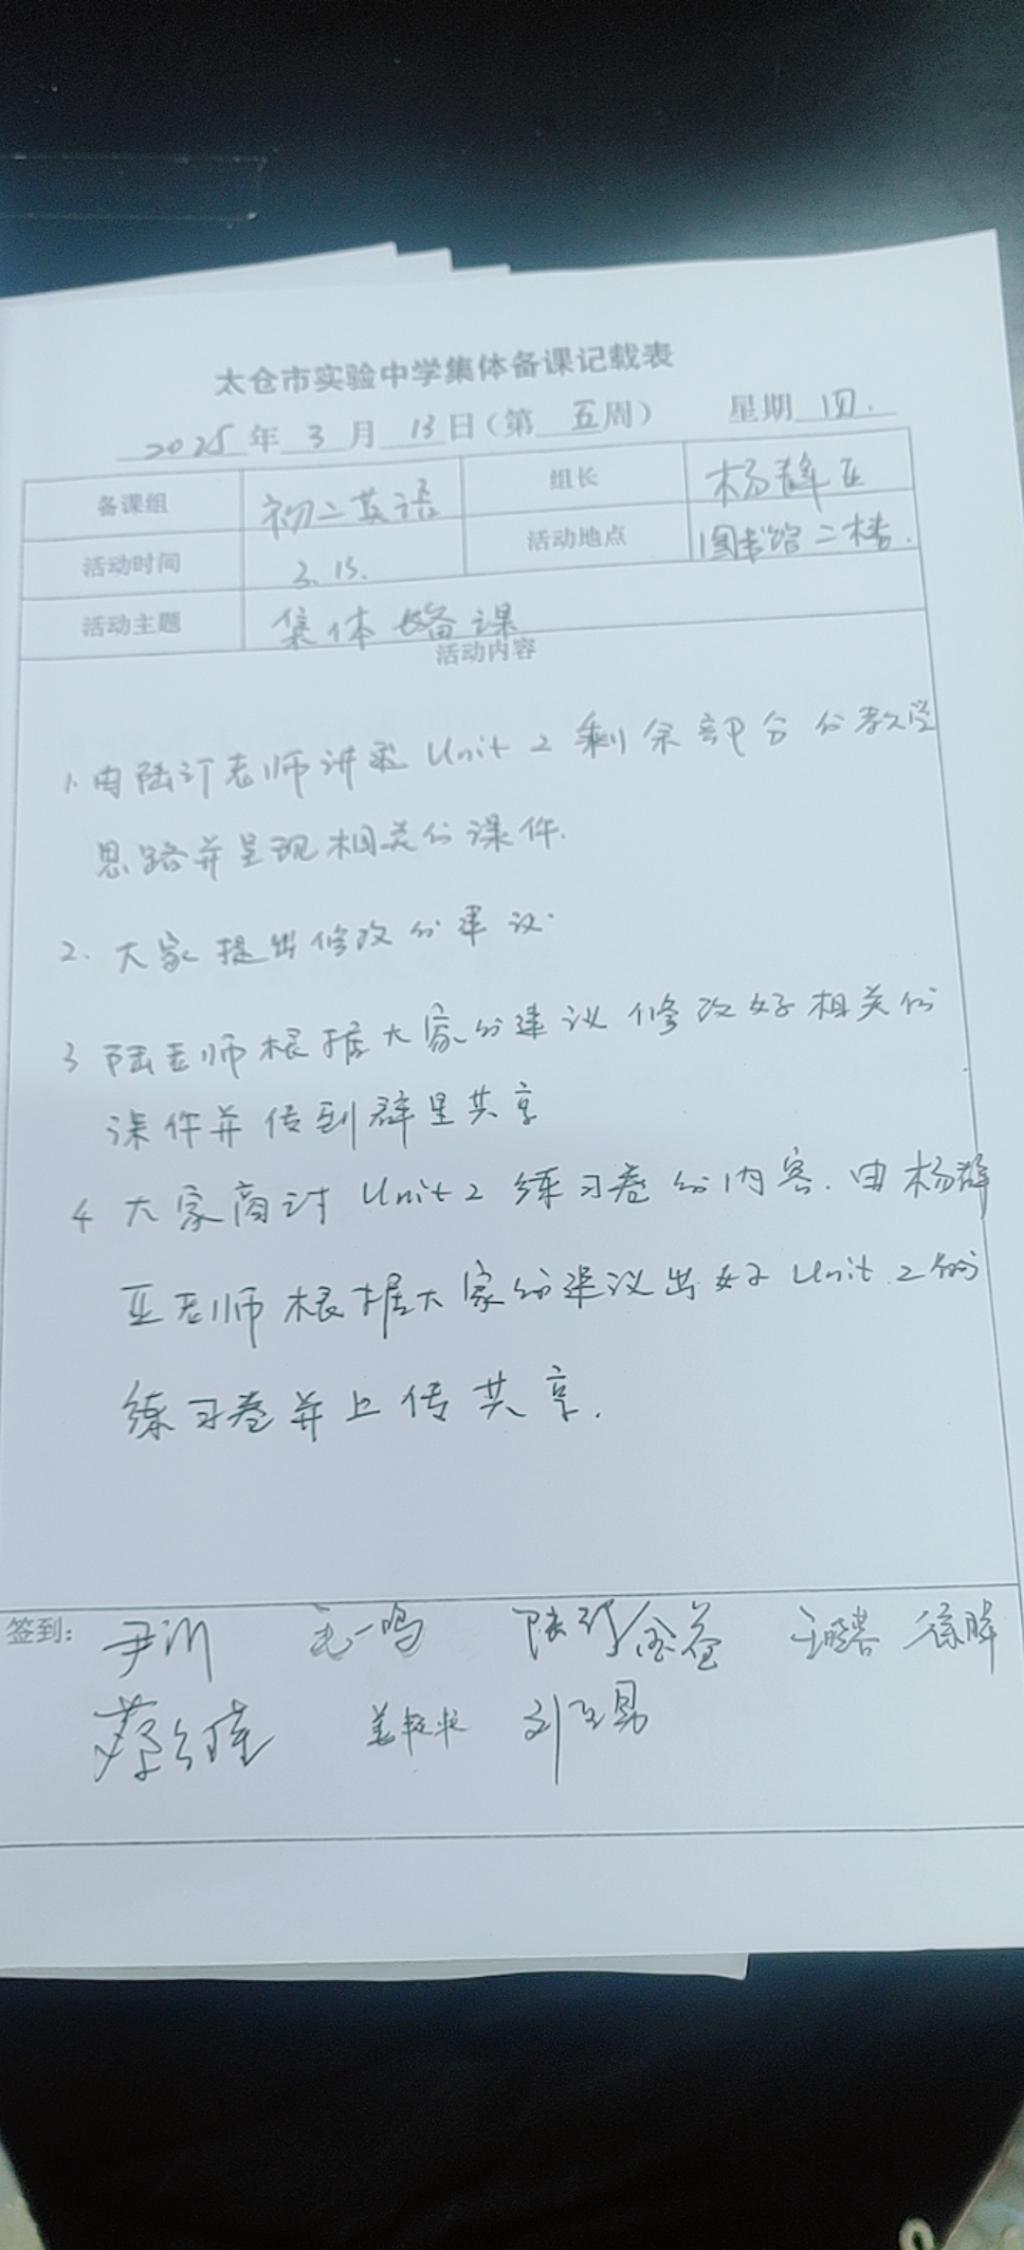 太仓市实验中学集体备课记载表
2025年3月13日(第五周) 星期四.
备课组 初二英语 组长 杨群亚
活动时间 3.13. 活动地点 图书馆二楼.
活动主题 集体备课
活动内容
1.由陆汀老师讲述Unit 2 剩余部分的教学
思路并呈现相关的课件.
2.大家提出修改的建议.
3 陆老师根据大家的建议修改好相关的
课件并传到群里共享
4 大家商讨 Unit 2 练习卷的内容.由杨群
亚老师根据大家的建议出好Unit 2的
练习卷并上传共享.
签到: 尹川 毛一鸣 陆汀 徐晔